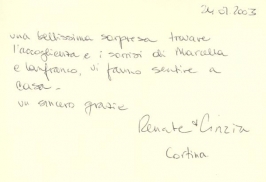 24.07.2003
una bellissima sorpresa trovare
l'accoglienza e i sorrisi di Marcella
e Lanfranco, vi fanno sentire a
casa -
un sincero grazie
Renate + Cinzia
Cortina